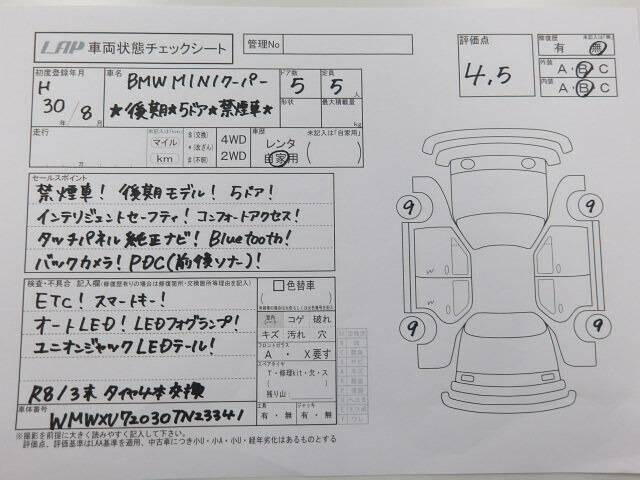 LAP 車両状態チェックシート
管理No
評価点
4.5
修復歴
未記入は「無」
有・無
外装
A・B・C
内装
A・B・C
初度登録年月
H
30年/8月
車名
BMWMINIクーパー
★後期★5ドア★禁煙車★
ドア数
5
定員
5人
形状
最大積載量
kg
走行
万
未記入はkm
マイル
km
$(交換)
*(改ざん)
#(不明)
4WD
2WD
車歴
未記入は「自家用」
レンタ
自家用
( )
セールスポイント
禁煙車! 後期モデル! 5ドア!
インテリジェントセーフティ! コンフォートアクセス!
タッチパネル純正ナビ! Bluetooth!
バックカメラ! PDC(前後ソナー)!
検査・不具合 記入欄(修復歴有りの場合は修復箇所・交換箇所等情報を記入)
ETC! スマートキー!
オートLED! LEDフォグランプ!
ユニオンジャックLEDテール!
R8/3末 タイヤ4本交換
色替車
( )
コゲ 破れ
キズ 汚れ 穴
フロントガラス
A ・ X要す
スペアタイヤ
T・修理kit・欠・ス
残り山( )
工具
有・無
ジャッキ
有・無
車体番号
WMWXU72030TN23341
※撮影を前提に大きく読みやすく記入して下さい。
評価点、評価基準はLAA基準を適用、中古車につき小U・小A・小U・経年劣化はあるものとする
9
9
9
9